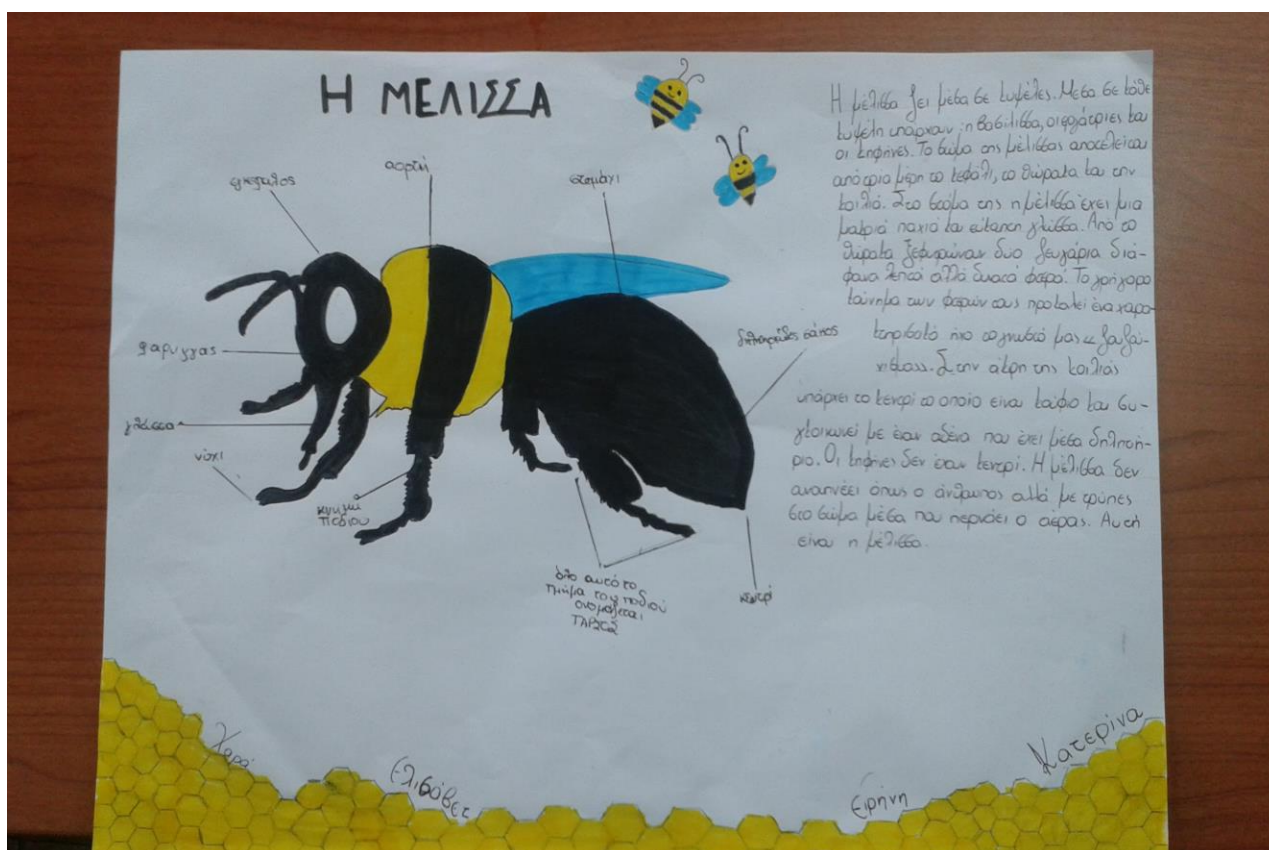 Η ΜΕΛΙΣΣΑ
εγκεφαλος
αορτή
στομάχι
φαρυγγας
γλώσσα
νύχι
κνημη
ποδιου
όλο αυτό το
τμήμα του ποδιού
ονομάζεται
ΤΑΡΣΟΣ
δηλητηριώδες σάκος
κεντρί
Η μέλισσα ζει μέσα σε κυψέλες. Μεσα σε κάθε
κυψέλη υπάρχουν :η βασίλισσα, οι εργάτριες και
οι κηφήνες. Το σώμα της μέλισσας αποτελείται
από τρια μέρη το κεφάλι, το θώρακα και την
κοιλιά. Στο στόμα της η μέλισσα έχει μια
μακριά παχιά και εύκαμπτη γλώσσα. Από το
θώρακα ξεφυτρώνουν δυο ζευγάρια διά-
φανα λεπτά αλλά δυνατά φτερά. Το γρήγορο
κούνημα των φτερών τους προκαλεί ένα χαρα-
κτηριστικό ήχο το γνωστό μας << ζουζού-
νισμα>>. Στην άκρη της κοιλιάς
υπάρχει το κεντρί το οποίο είναι κούφιο και συ-
γκοινωνεί με έναν αδένα που έχει μέσα δηλητή-
ριο. Οι κηφήνες δεν έχουν κεντρί. Η μέλισσα δεν
αναπνέει όπως ο άνθρωπος αλλά με τρύπες
στο σώμα μέσα που περνάει ο αέρας. Αυτή
είναι η μέλισσα.
Χαρά
Ελισάβετ
Ειρήνη
Κατερίνα